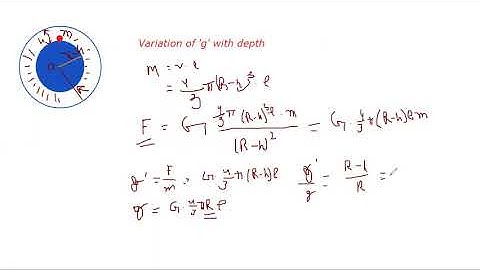 Variation of 'g' with depth
h m
R-h
M = v ρ
= 4/3 π(R-h)³ ρ
F = G 4/3 π (R-h)³ρ · m / (R-h)² = G · 4/3 π (R-h)ρm
g' = F/m = G 4/3 π (R-h)ρ g'/g = R-h/R =
g = G · 4/3 πR ρ